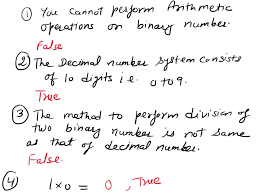 ① You cannot perform Arithmetic
operations on binary number.
False
② The Decimal number system consists
of 10 digits i.e. 0 to 9.
True
③ The method to perform division of
two binary number is not same
as that of decimal number.
False.
④ 1 x 0 = 0 , True